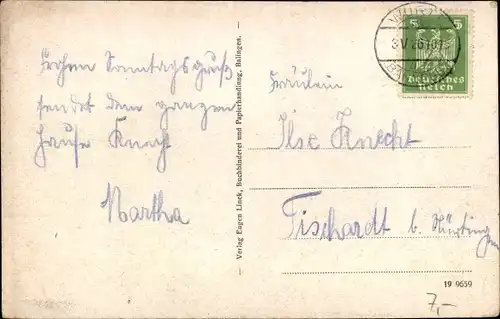 Frohen Sonntagsgruß
sendet dem ganzen
Hause Knecht
Martha
Verlag Eugen Linck, Buchbinderei und Papierhandlung, Balingen.
5 5
Deutsches
Reich
Fräulein
Ilse Knecht
Tischardt b. Nürtingen
19 9659
7,-